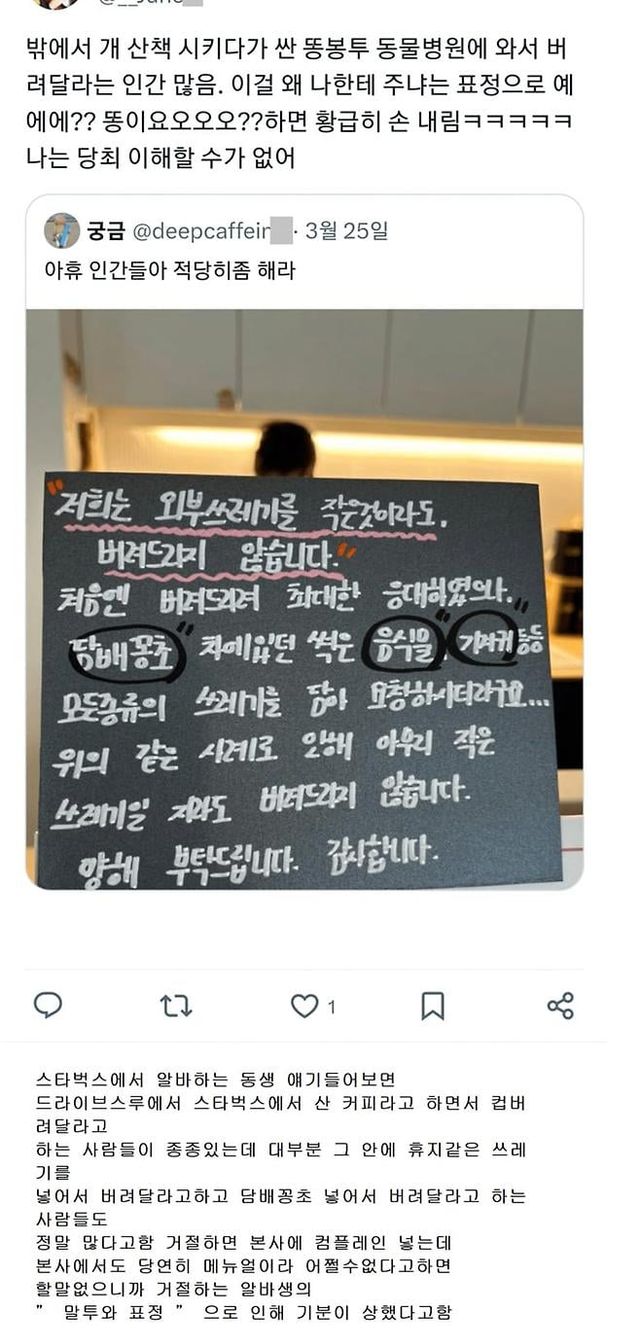 밖에서 개 산책 시키다가 싼 똥봉투 동물병원에 와서 버
려달라는 인간 많음. 이걸 왜 나한테 주냐는 표정으로 예
에에?? 똥이요오오오??하면 황급히 손 내림ㅋㅋㅋㅋㅋ
나는 당최 이해할 수가 없어
궁금 @deepcaffeir · 3월 25일
아휴 인간들아 적당히좀 해라
"저희는 외부쓰레기를 작은것이라도,
버려드리지 않습니다."
처음엔 버려드리려 최대한 응대하였으나,
"담배꽁초" 차에있던 썩은 "음식물" "기저귀" 등등
모든종류의 쓰레기를 담아 요청하시더라구요...
위의 같은 사례로 인해 아무리 작은
쓰레기일 지라도 버려드리지 않습니다.
양해 부탁드립니다. 감사합니다.
1
스타벅스에서 알바하는 동생 얘기들어보면
드라이브스루에서 스타벅스에서 산 커피라고 하면서 컵버
려달라고
하는 사람들이 종종있는데 대부분 그 안에 휴지같은 쓰레
기를
넣어서 버려달라고하고 담배꽁초 넣어서 버려달라고 하는
사람들도
정말 많다고함 거절하면 본사에 컴플레인 넣는데
본사에서도 당연히 메뉴얼이라 어쩔수없다고하면
할말없으니까 거절하는 알바생의
” 말투와 표정 ” 으로 인해 기분이 상했다고함